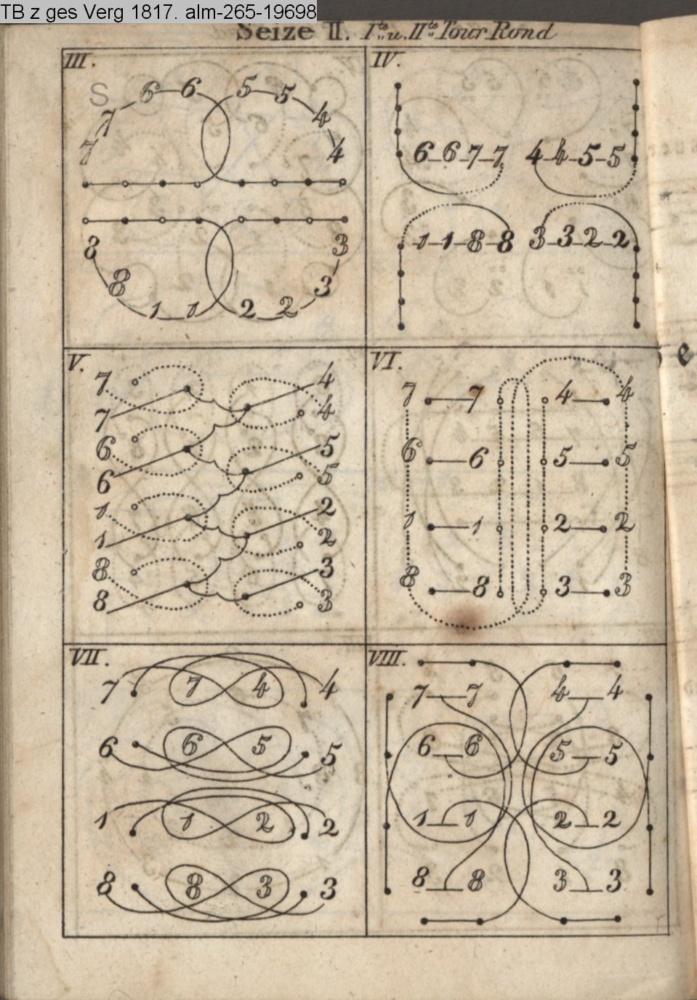 TB z ges Verg 1817. alm-265-19698
Seize II. I.te u. II.te Tour Rond
III.
S
6 6 5 5
7 4
7 4
8 3
8 3
1 1 2 2
IV.
6 6 7 7 4 4 5 5
1 1 8 8 3 3 2 2
V.
7 4
7 4
6 5
6 5
1 2
1 2
8 3
8 3
VI.
7 7 4 4
6 6 5 5
1 1 2 2
8 8 3 3
VII.
7 7 4 4
6 6 5 5
1 1 2 2
8 8 3 3
VIII.
7 7 4 4
6 6 5 5
1 1 2 2
8 8 3 3
e